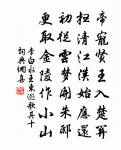 帝寵賢王入楚關
掃清江漢始應還
初從雲夢開朱邸
更取金陵作小山
李白永王東巡歌其十
詞典網